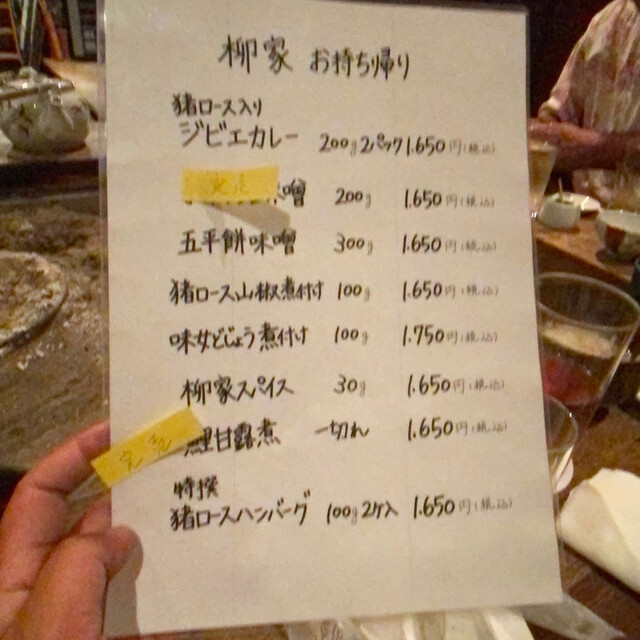 柳家 お持ち帰り
猪ロース入り
ジビエカレー 200g 2パック 1.650円(税込)
完売 味噌 200g 1.650円(税込)
五平餅味噌 300g 1.650円(税込)
猪ロース山椒煮付 100g 1.650円(税込)
味女どじょう煮付 100g 1.750円(税込)
柳家スパイス 30g 1.650円(税込)
完売 鯉甘露煮 一切れ 1.650円(税込)
特撰
猪ロースハンバーグ 100g 2ヶ入 1.650円(税込)